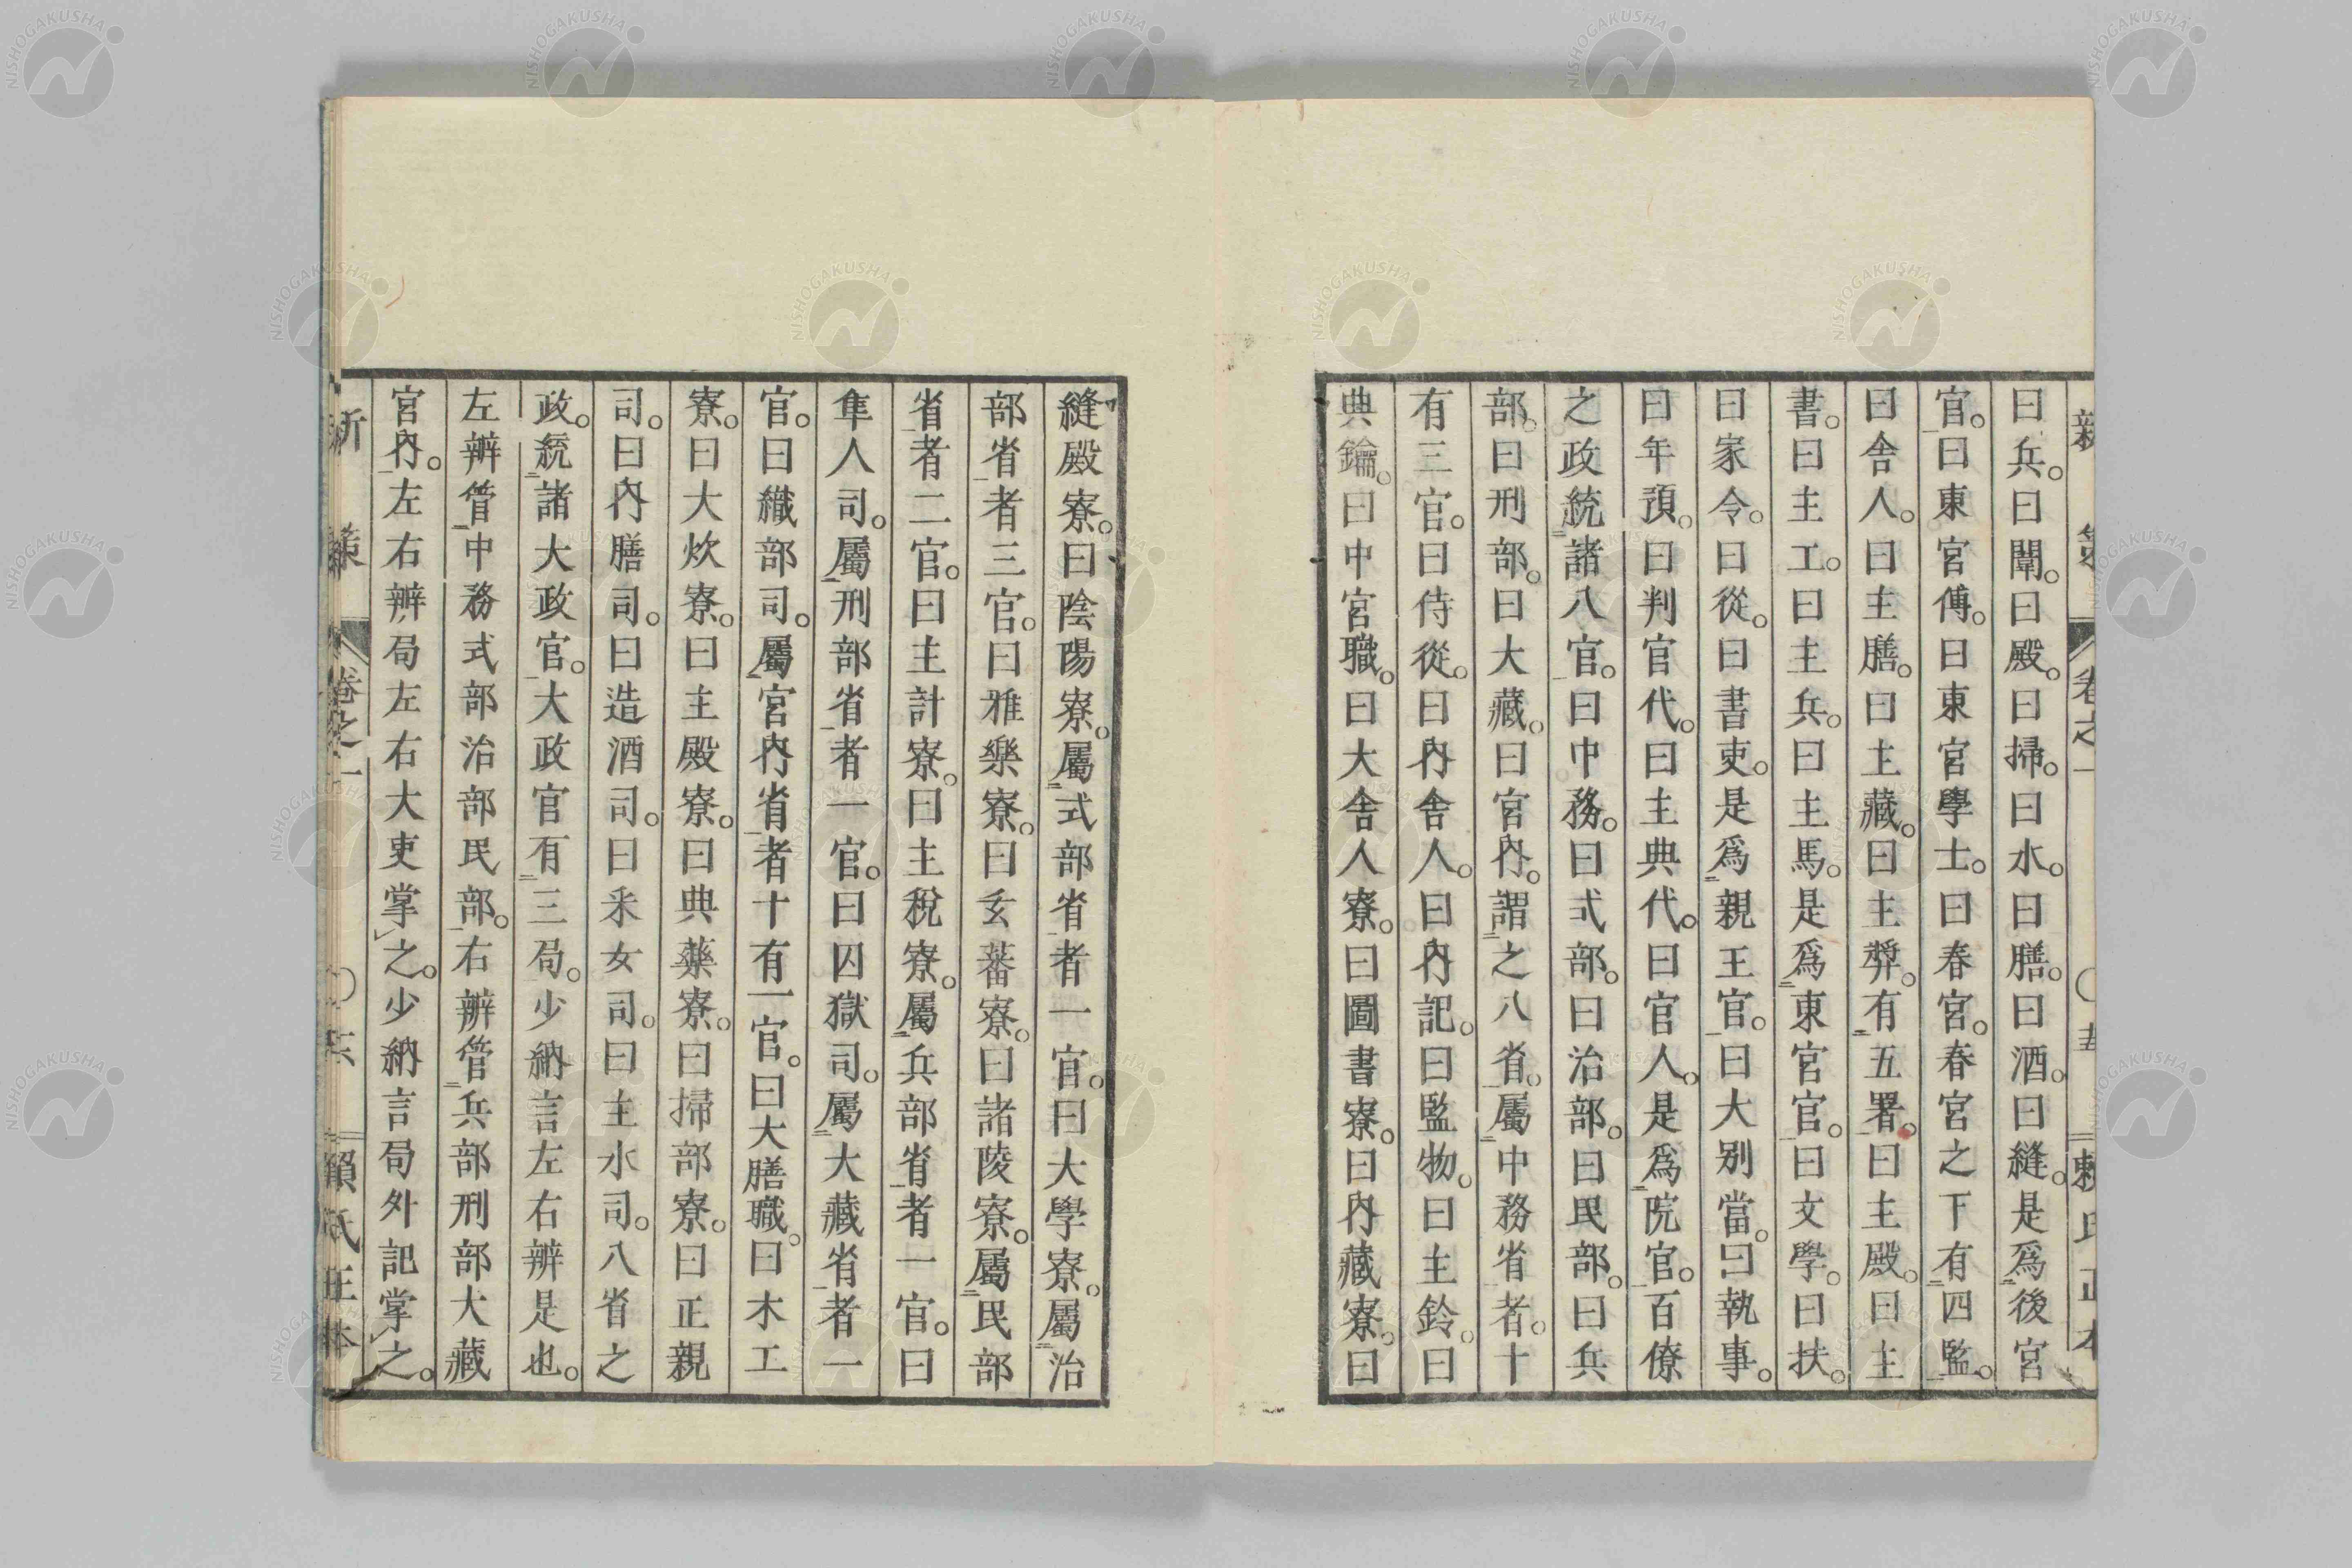 曰兵。曰闈。曰殿。曰掃。曰水。曰膳。曰酒。曰縫。是爲後宮
官。曰東宮傅。曰東宮學士。曰春宮。春宮之下有四監。
曰舎人。曰主膳。曰主藏。曰主漿。有五署。曰主殿。曰主
書。曰主工。曰主兵。曰主馬。是爲東宮官。曰文學。曰扶。
曰家令。曰從。曰書吏。是爲親王官。曰大別當。曰執事。
曰年預。曰判官代。曰主典代。曰官人。是爲院官。百僚
之政統諸八官。曰中務。曰式部。曰治部。曰民部。曰兵
部。曰刑部。曰大藏。曰宮內。謂之八省。屬中務省者。十
有三官。曰侍從。曰內舎人。曰內記。曰監物。曰主鈴。曰
典鑰。曰中宮職。曰大舎人寮。曰圖書寮。曰內藏寮。曰
縫殿寮。曰陰陽寮。屬式部省者一官。曰大學寮。屬治
部省者三官。曰雅樂寮。曰玄蕃寮。曰諸陵寮。屬民部
省者二官。曰主計寮。曰主稅寮。屬兵部省者一官。曰
隼人司。屬刑部省者一官。曰囚獄司。屬大藏省者一
官。曰織部司。屬宮內省者十有一官。曰大膳職。曰木工
寮。曰大炊寮。曰主殿寮。曰典藥寮。曰掃部寮。曰正親
司。曰內膳司。曰造酒司。曰采女司。曰主水司。八省之
政。統諸大政官。大政官有三局。少納言左右辨是也。
左辨管中務式部治部民部。右辨管兵部刑部大藏
宮內。左右辨局左右大吏掌之。少納言局外記掌之。
新策 卷之一 〇六 賴氏正本
NISHOGAKUSHA